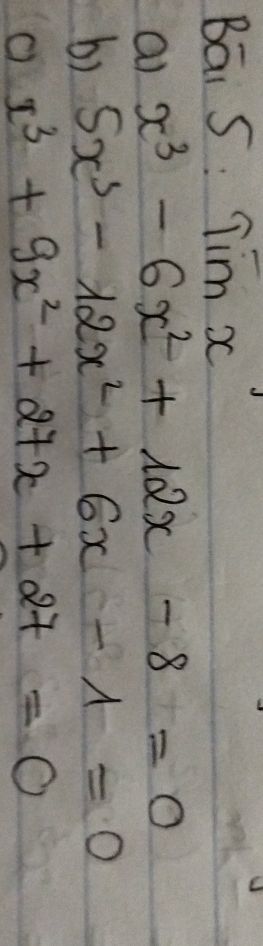 Bài 5: Tìm x
a) x³ - 6x² + 12x - 8 = 0
b) 5x³ - 12x² + 6x - 1 = 0
c) x³ + 9x² + 27x + 27 = 0